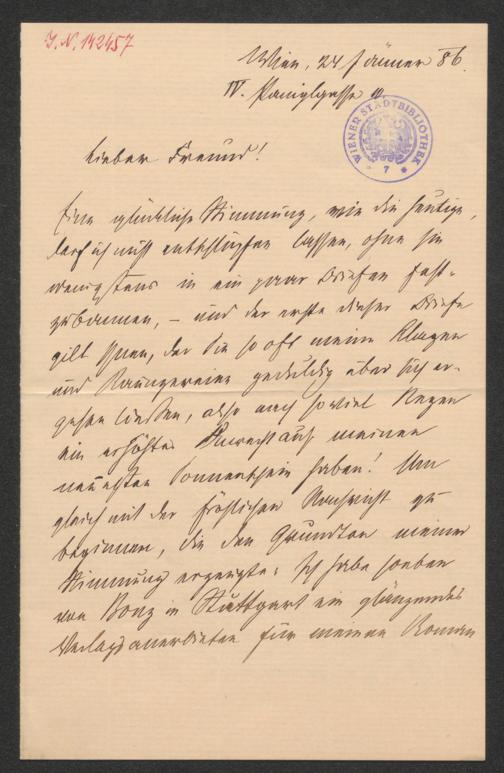 J. N. 142457
Wien, 24 Jänner 86.
IV. Paniglgasse
WIENER STADTBIBLIOTHEK
7
Lieber Freund!
Eine glückliche Stimmung, wie die heutige,
darf ich nicht entschlüpfen lassen, ohne sie
wenigstens in ein paar Briefen fest-
zubannen, – und der erste dieser Briefe
gilt Ihnen, der Sie so oft meine Klagen
und Raunzereien geduldig über sich er-
gehen ließen, also nach so viel Regen
ein erhöhtes Anrecht auf meinen
neuesten Sonnenschein haben! Um
gleich mit der fröhlichen Nachricht zu
beginnen, die den Grundton meiner
Stimmung erzeugte: Ich habe soeben
von Bonz in Stuttgart ein glänzendes
Verlagsanerbieten für meinen Roman